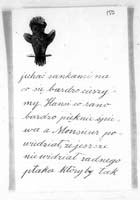 155
jechać sankami na
co się bardzo cieszy-
my. Hansi co rano
bardzo pięknie śpie-
wa a Monsieur po-
wiedział że jeszcze
nie widział żadnego
ptaka któryby tak